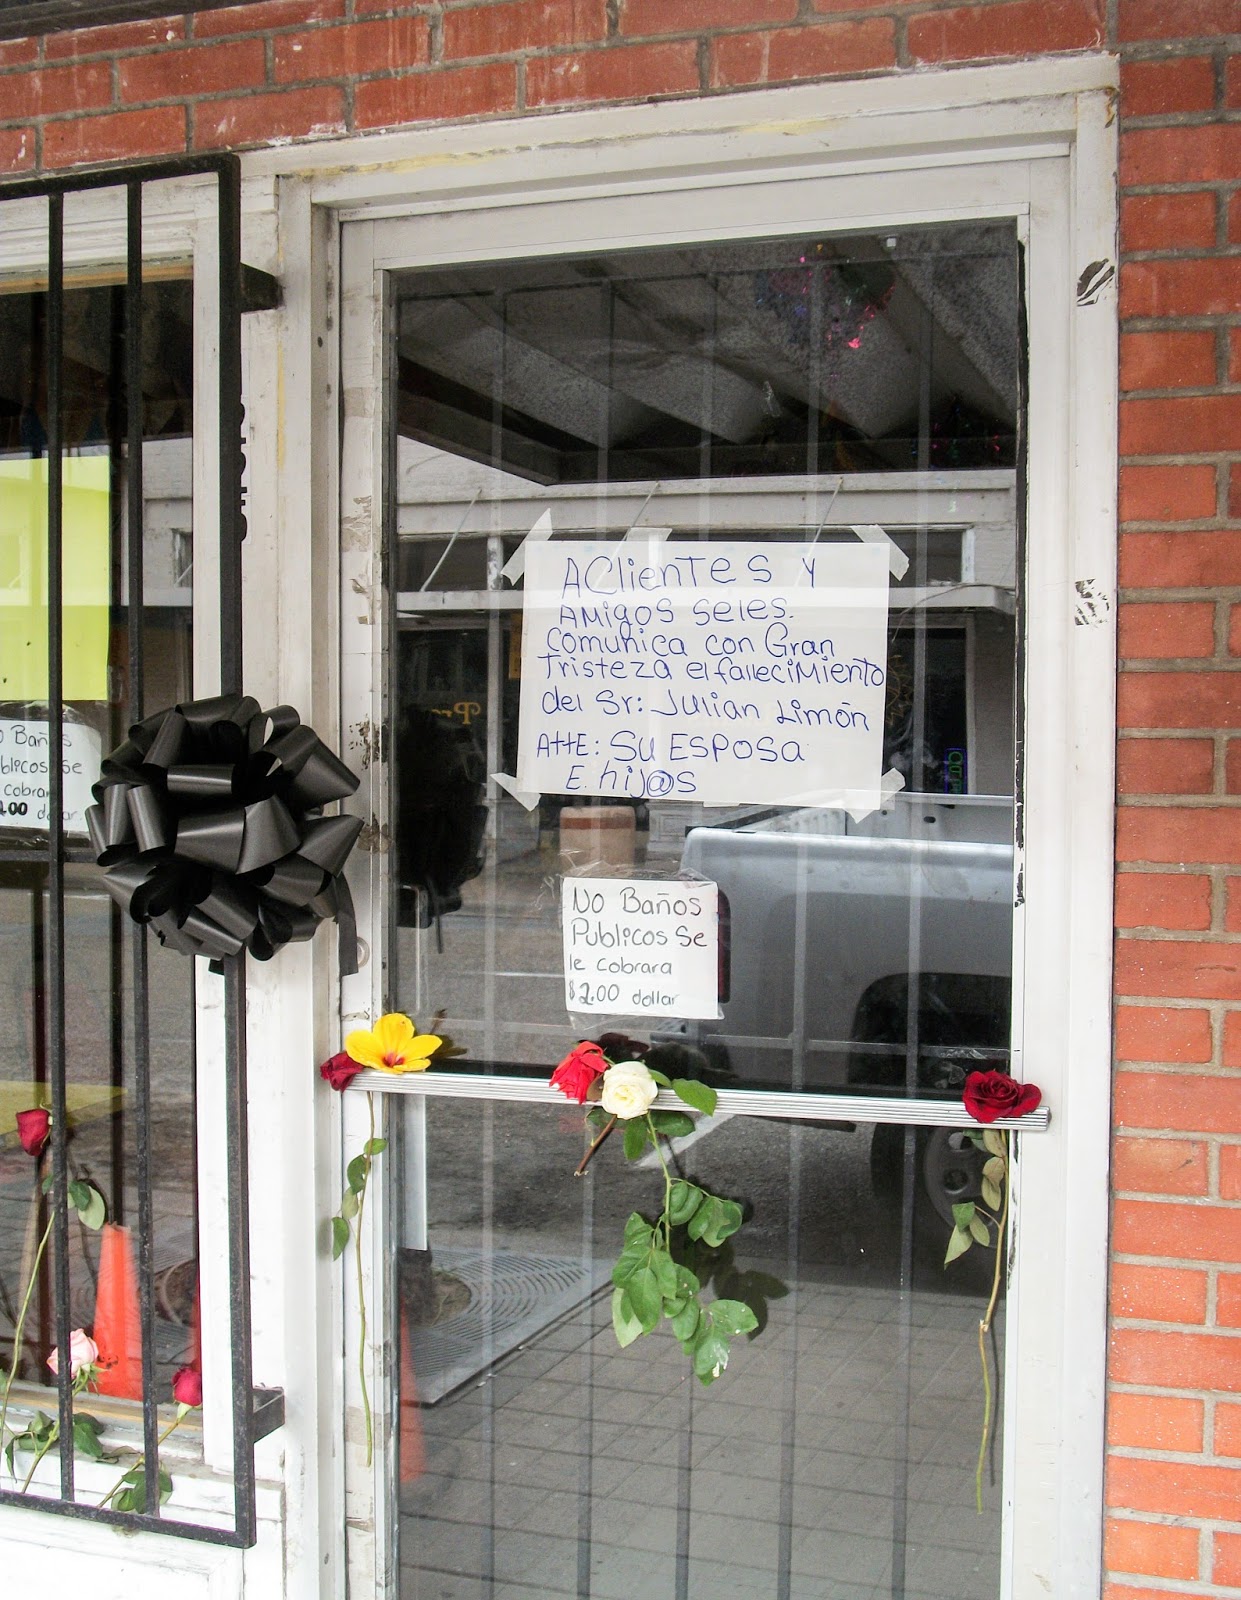 AClienTes y
AMigos seles.
comunica con Gran
Tristeza el falleciMiento
del Sr: Julian Limón
AttE: Su ESPOSA
E. hij@s
No Baños
Publicos Se
le cobrara
$2.00 dollar
Baños
blicos Se
cobrar
.00 dollar.